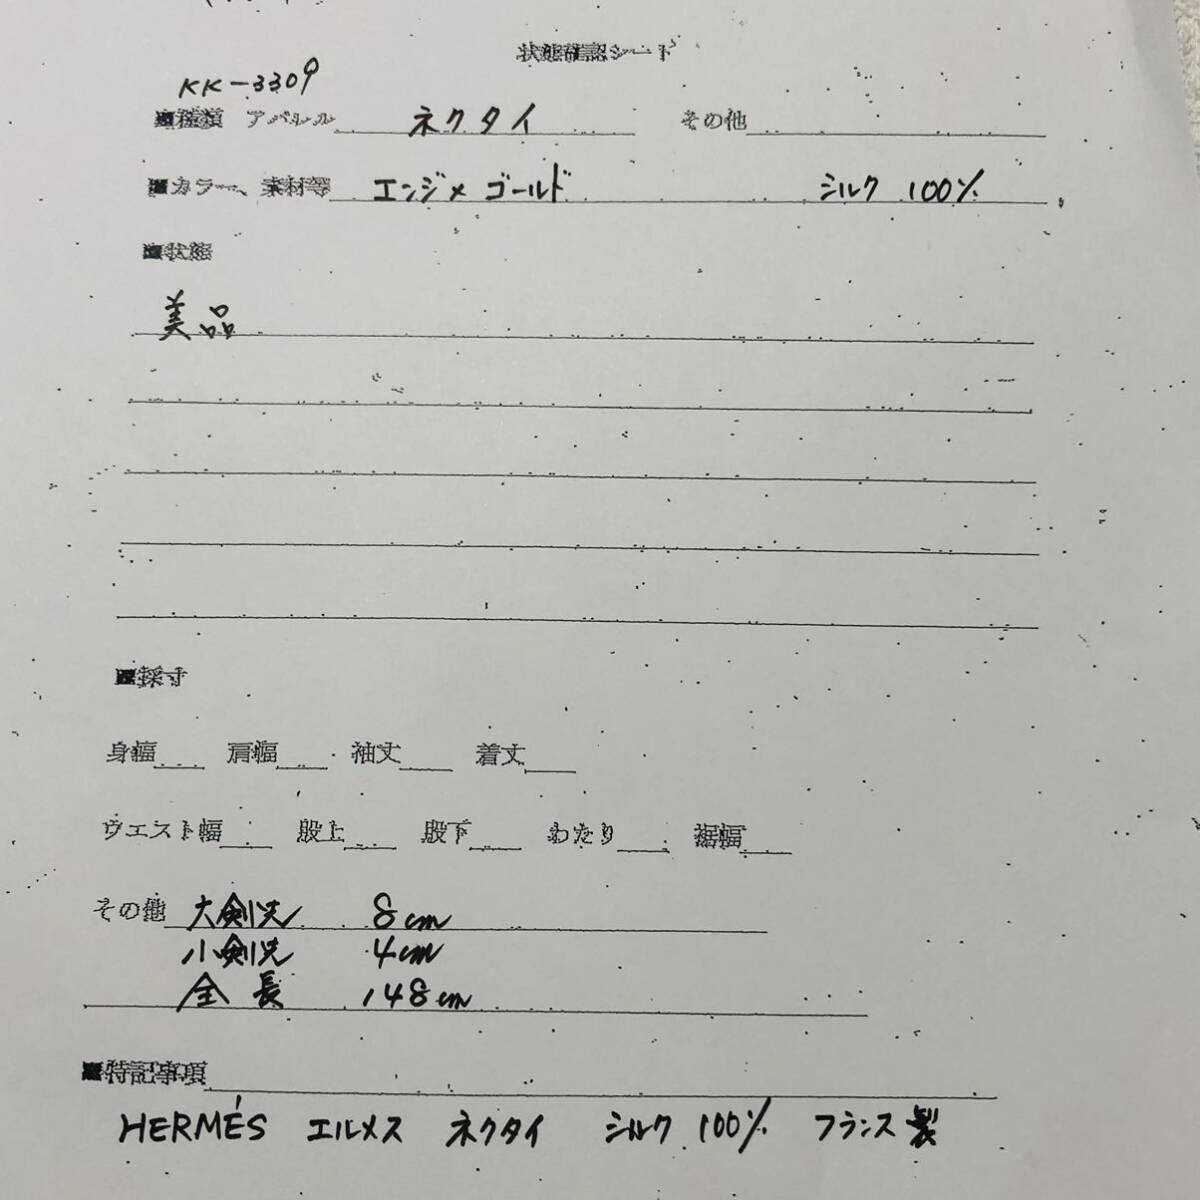 状態確認シート
KK-3309
■種類 アパレル ネクタイ その他
■カラー、素材等 エンジ×ゴールド シルク 100%
■状態
美品
■採寸
身幅 肩幅 袖丈 着丈
ウエスト幅 股上 股下 わたり 裾幅
その他 大剣先 8cm
小剣先 4cm
全長 148cm
■特記事項
HERMÉS エルメス ネクタイ シルク 100% フランス製